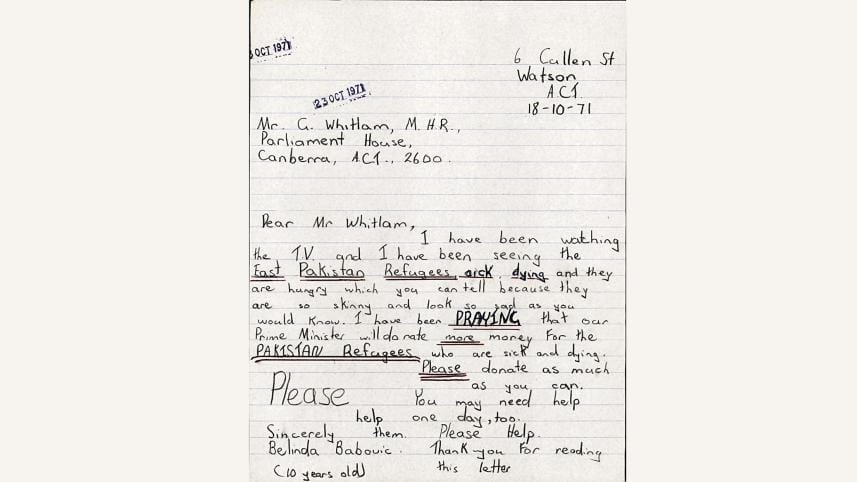 OCT 1971
23 OCT 1971
6 Cullen St
Watson
A.C.T.
18-10-71
Mr. G. Whitlam, M.H.R.,
Parliament House,
Canberra, A.C.T., 2600.
Dear Mr Whitlam,
I have been watching
the T.V. and I have been seeing the
East Pakistan Refugees, sick, dying and they
are hungry which you can tell because they
are so skinny and look so sad as you
would know. I have been PRAYING that our
Prime Minister will donate more money for the
PAKISTAN Refugees who are sick and dying.
Please donate as much
as you can.
Please You may need help
help one day, too.
Sincerely them. Please Help.
Belinda Babovic. Thank you for reading
(10 years old) this letter